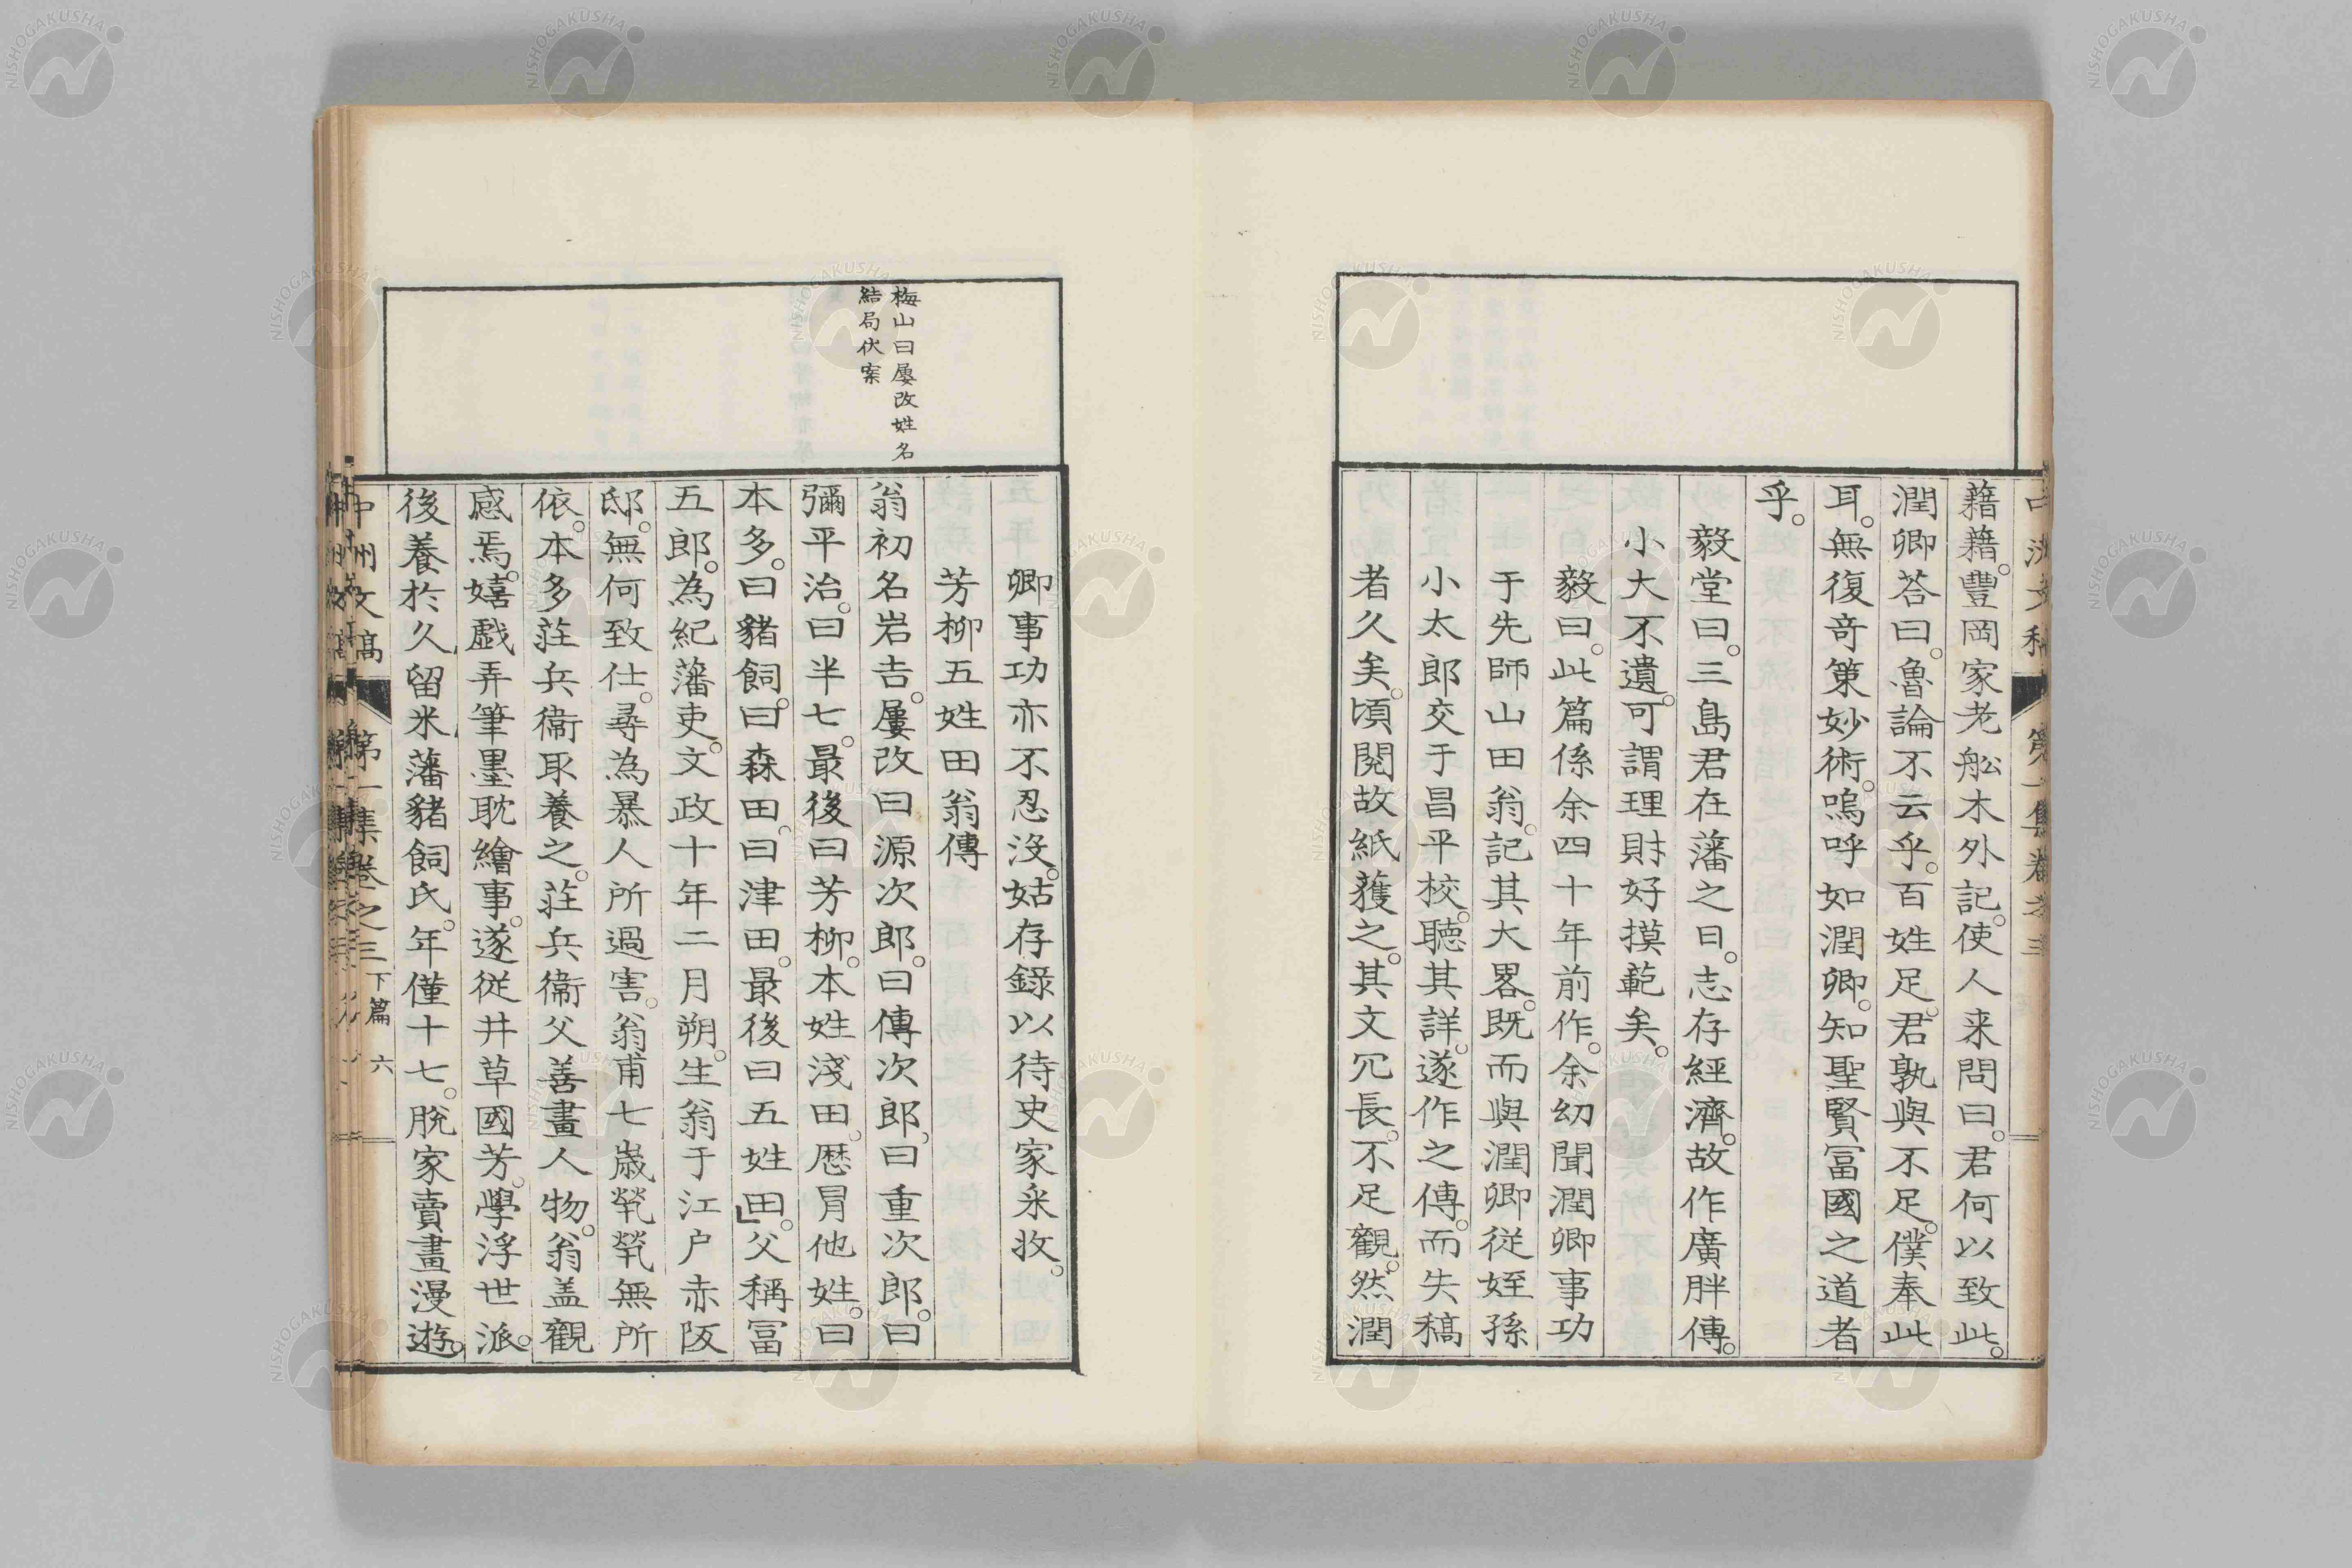 藉藉。豐岡家老舩木外記。使人来問曰。君何以致此。
潤卿荅曰。魯論不云乎。百姓足。君孰與不足。僕奉此
耳。無復奇策妙術。嗚呼如潤卿。知聖賢冨國之道者
乎。
毅堂曰。三島君在藩之日。志存經濟。故作廣胖傳。
小大不遺。可謂理財好摸範矣。
毅曰。此篇係余四十年前作。余幼聞潤卿事功
于先師山田翁。記其大畧。既而與潤卿従姪孫
小太郎交于昌平校。聴其詳。遂作之傳。而失稿
者久矣。頃閲故紙獲之。其文冗長。不足觀。然潤
卿事功亦不忍沒。姑存録以待史家采收。
芳柳五姓田翁傳
翁初名岩吉。屢改曰源次郎。曰傳次郎。曰重次郎。曰
彌平治。曰半七。最後曰芳柳。本姓淺田。歴冒他姓。曰
本多。曰豬飼。曰森田。曰津田。最後曰五姓田。」父稱冨
五郎。為紀藩吏。文政十年二月朔。生翁于江户赤阪
邸。無何致仕。尋為暴人所過害。翁甫七歳煢煢無所
依。本多莊兵衞取養之。莊兵衞父善畫人物。翁盖觀
感焉。嬉戯弄筆墨耽繪事。遂従井草國芳。學浮世派。
後養於久留米藩豬飼氏。年僅十七。脫家賣畫漫遊。
梅山曰屢改姓名
結局伏案
中州文稿
第一集卷之三
下篇
六
NISHOGAKUSHA